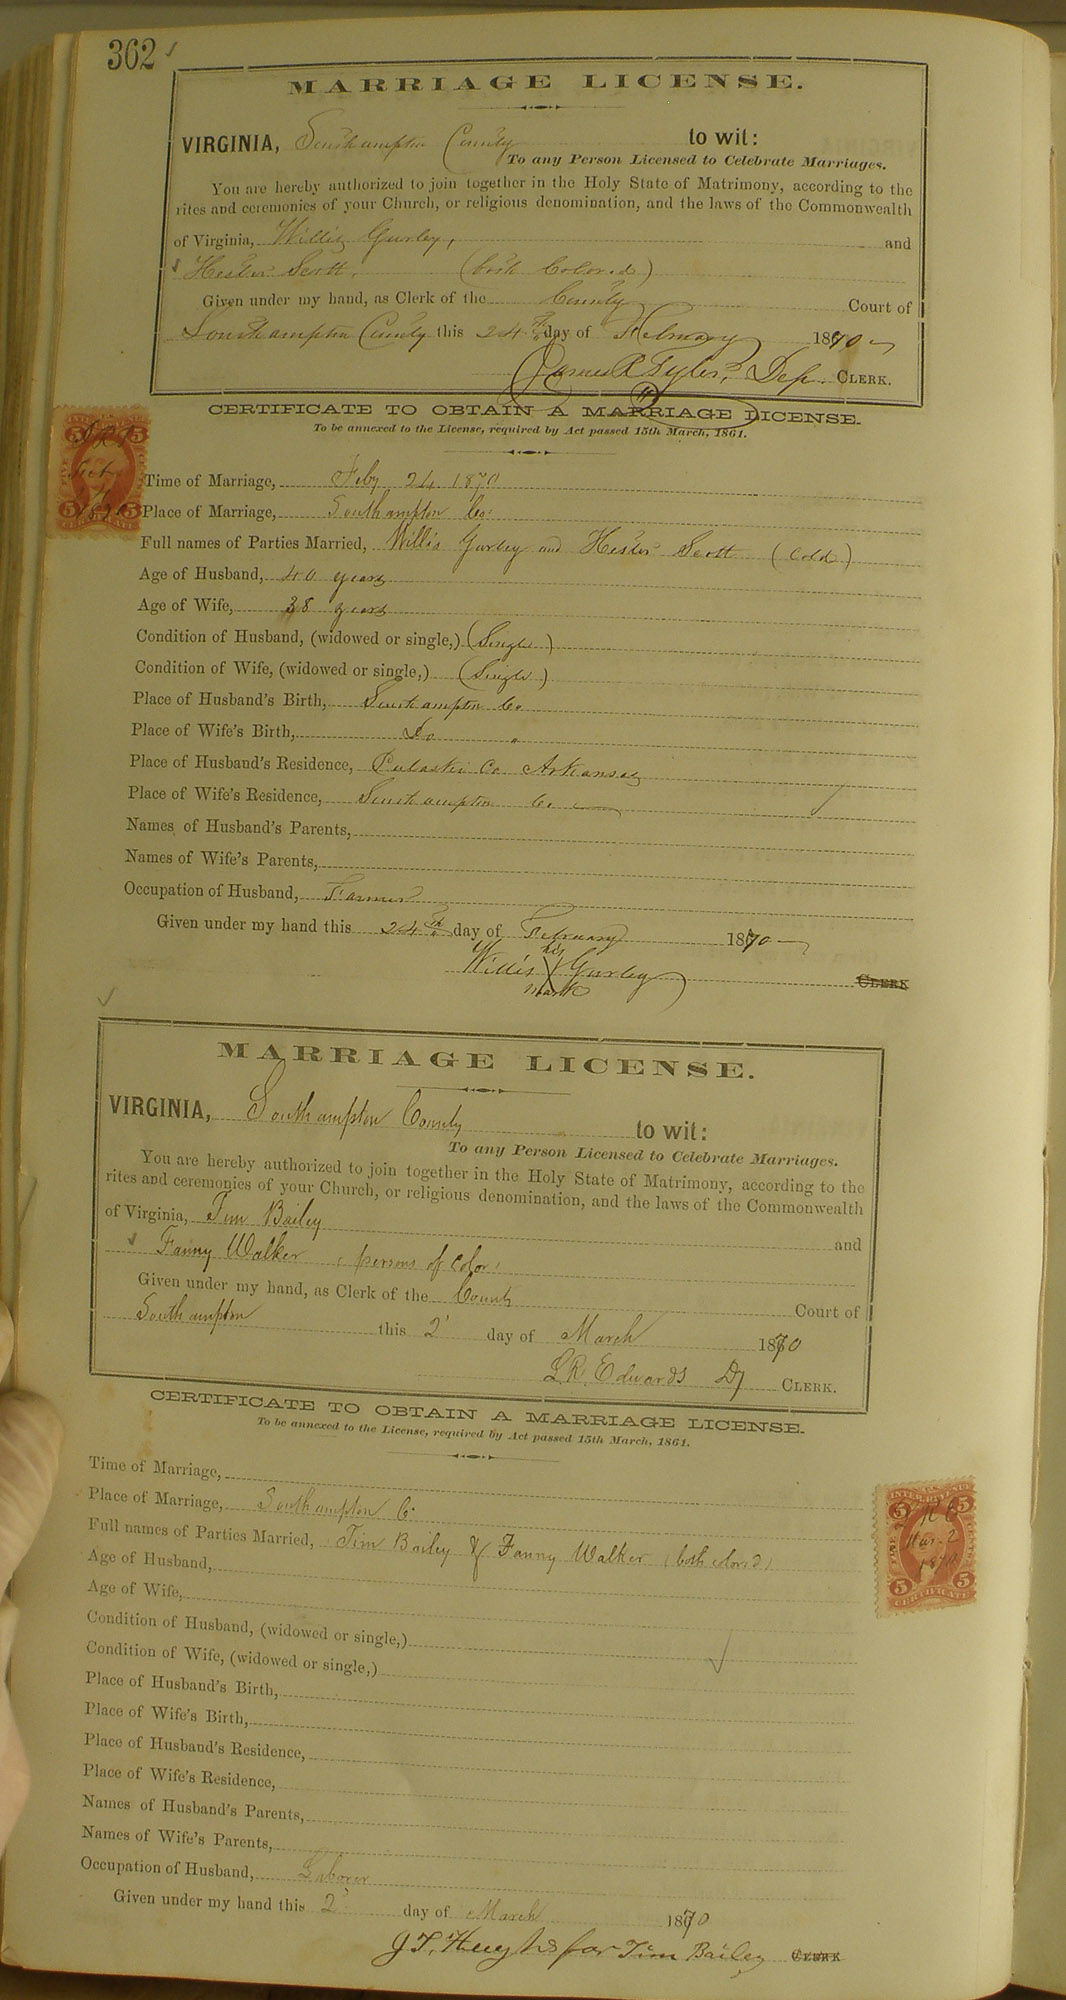 362
MARRIAGE LICENSE.
VIRGINIA, Southampton County to wit:
To any Person Licensed to Celebrate Marriages.
You are hereby authorized to join together in the Holy State of Matrimony, according to the
rites and ceremonies of your Church, or religious denomination, and the laws of the Commonwealth
of Virginia, Willis Gurley, and
Hester Scott, (both Colored)
Given under my hand, as Clerk of the County Court of
Southampton County this 24th day of February 1870
James R Tyler, Dep. CLERK.
CERTIFICATE TO OBTAIN A MARRIAGE LICENSE.
To be annexed to the License, required by Act passed 15th March, 1861.
Time of Marriage, Feby 24 1870
Place of Marriage, Southampton Co:
Full names of Parties Married, Willis Gurley and Hester Scott (Cold)
Age of Husband, 40 years
Age of Wife, 38 years
Condition of Husband, (widowed or single,) (Single)
Condition of Wife, (widowed or single,) (Single)
Place of Husband's Birth, Southampton Co.
Place of Wife's Birth, Do "
Place of Husband's Residence, Pulaski Co Arkansas
Place of Wife's Residence, Southampton Co.
Names of Husband's Parents,
Names of Wife's Parents,
Occupation of Husband, Farmer
Given under my hand this 24th day of February 1870
his
Willis X Gurley CLERK
mark
MARRIAGE LICENSE.
VIRGINIA, Southampton County to wit:
To any Person Licensed to Celebrate Marriages.
You are hereby authorized to join together in the Holy State of Matrimony, according to the
rites and ceremonies of your Church, or religious denomination, and the laws of the Commonwealth
of Virginia, Tim Bailey and
Fanny Walker, persons of color.
Given under my hand, as Clerk of the County Court of
Southampton this 2' day of March 1870
L.R. Edwards Dy CLERK.
CERTIFICATE TO OBTAIN A MARRIAGE LICENSE.
To be annexed to the License, required by Act passed 15th March, 1861.
Time of Marriage,
Place of Marriage, Southampton C:
Full names of Parties Married, Tim Bailey & Fanny Walker (both colored)
Age of Husband,
Age of Wife,
Condition of Husband, (widowed or single,)
Condition of Wife, (widowed or single,)
Place of Husband's Birth,
Place of Wife's Birth,
Place of Husband's Residence,
Place of Wife's Residence,
Names of Husband's Parents,
Names of Wife's Parents,
Occupation of Husband, Laborer
Given under my hand this 2' day of March 1870
J.T. Hughs for Tim Bailey CLERK
5 5
Mar. 2
1870
5 5
CERTIFICATE